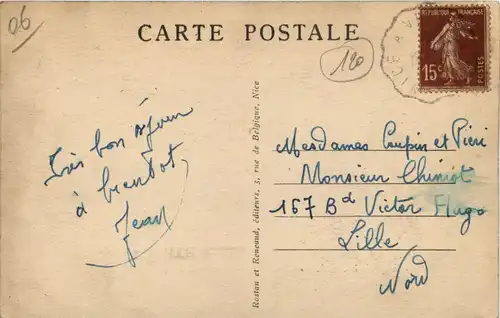 06
CARTE POSTALE
120
REPUBLIQUE FRANÇAISE
15c
POSTES
Très bon séjour
à bientôt
Jean
Rostan et Reneaud, éditeurs, 3, rue de Belgique, Nice
Mesdames Coupin et Pieri
Monsieur Chiniot
167 Bd Victor Hugo
Lille
Nord